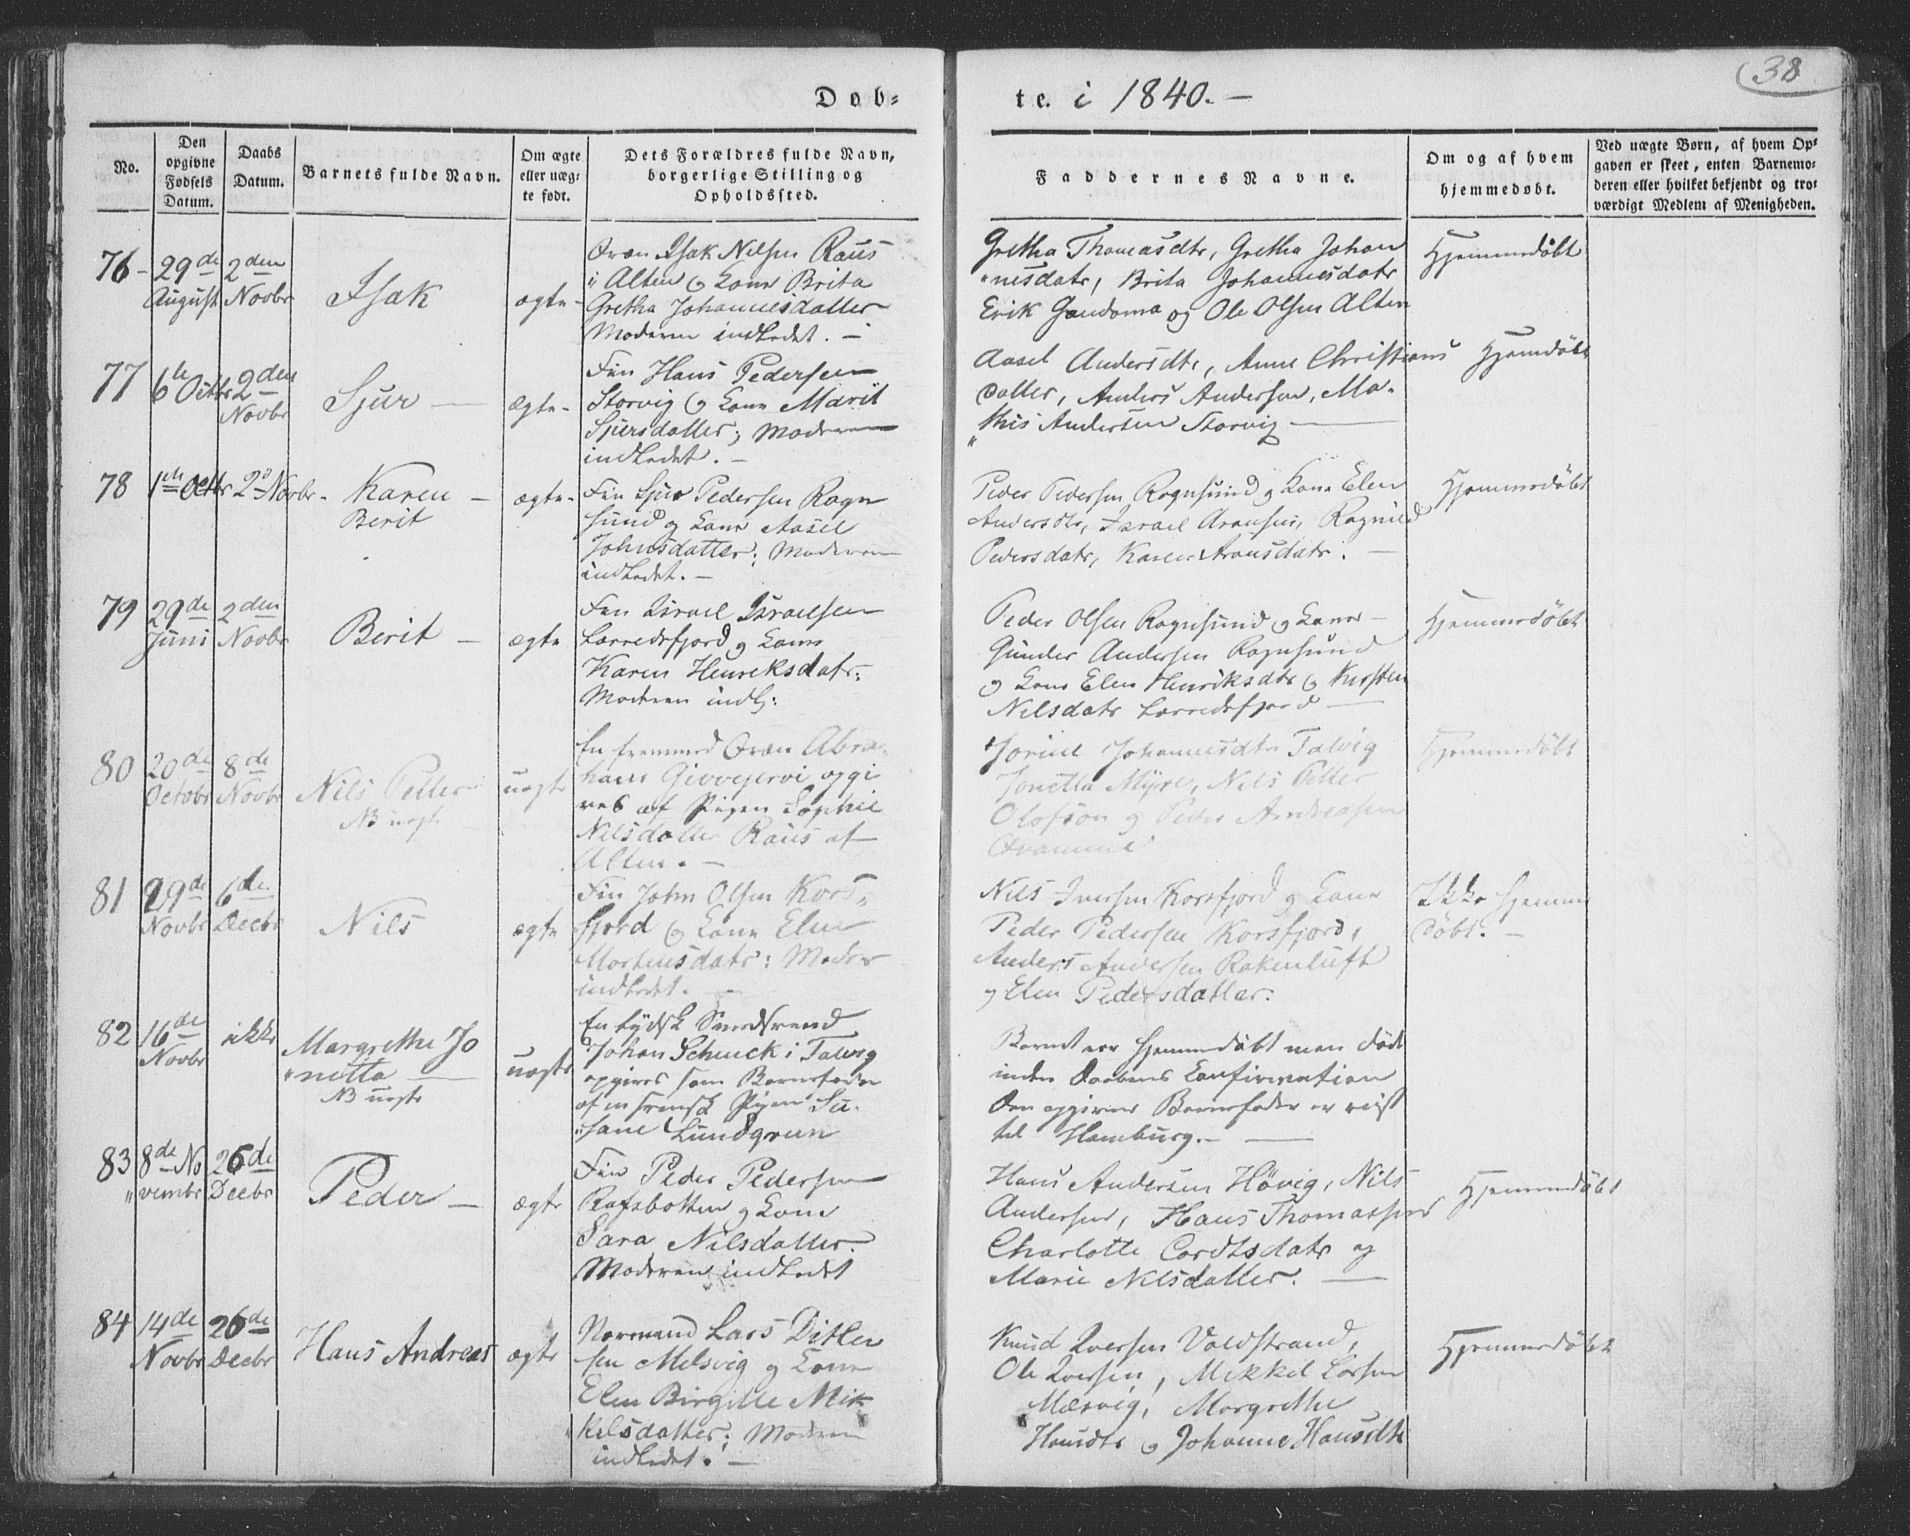 38
Døb-
te. i 1840. -
No.
Den
opgivne
Fødsels
Datum.
Daabs
Datum.
Barnets fulde Navn.
Om ægte
eller uæg-
te født.
Dets Forældres fulde Navn,
borgerlige Stilling og
Opholdssted.
Faddernes Navne.
Om og af hvem
hjemmedøbt.
Ved uægte Børn, af hvem Op-
gaven er skeet, enten Barnemo-
deren eller hvilket bekjendt og tro-
værdigt Medlem af Menigheden.
76 -
29de
August
2den
Novbr
Isak
ægte -
Qvæn Isak Nilsen Raus
i Alten og Kone Brita
Gretha Johannesdatter
Moderen indledet. -
Gretha Thomasdtr, Gretha Johan
"nesdatr, Brita Johannesdatr
Erik og Ole Olsen Alten
Hjemmedøbt
77
6te Octbr
2den
Novbr
Sjur -
Ægte -
Fin Hans Pedersen
Storvig og Kone Marit
Sjursdatter; Moderen
indledet. -
Aasel Andersdtr, Anne Christians
datter, Anders Andersen, Ma-
"this Andersen Storvig -
Hjemdøbt
78
1ste Octbr
2d Novbr -
Karen -
Berit
ægte -
Fin Sjur Pedersen Rogn
sund og Kone Aasel
Johnsdatter; Moderen
indledet. -
Peder Pedersen Rognsund og Kone Elen
Andersdtr, Israel Aronsen, Ragnild
Pedersdatr, Karen Aronsdatr. -
Hjemmedøbt
79
29de
Juni
2den
Novbr
Berit -
ægte
Fin Israel Israelsen
Lerredsfjord og Kone
Karen Henriksdatr;
Moderen indl:
Peder Olsen Rognsund og Kone -
Gunder Andersen Rognsund
og Kone Elen Henriksdtr og Kirsten
Nilsdatr Lerredsfjord -
Hjemmedøbt
80
20de
Octobr
8de
Novbr
Nils Petter
NB uægte
uægte
En fremmed Qvæn Abra-
ham opgi
ves af Pigen Sophie
Nilsdatter Raus af
Alten. -
Johannesdtr Talvig
Jonetta Myre, Nils Petter
Olofson og Peder Andreasen
Hjemmedøbt
81
29de
Novbr
6de
Decbr
Nils
ægte
Fin John Olsen Kors-
fjord og Kone Elen
Mortensdatr: Moder
indledet. -
Nils Iversen Korsfjord og Kone
Peder Pedersen Korsfjord,
Anders Andersen Rakenluft
og Elen Pedersdatter.
Ikke hjemme
døbt. -
82
16de
Novbr
ikke
Margrethe Jo
"netta -
NB uægte
uægte
En tydsk Smedsvend
Johan Schuck i Talvig
opgives som Barnefader
af en svensk Pigen Su-
"sane Lundgreen
Barnet var hjemmedøbt men døde
inden Daabens Confirmation
Den opgivne Barnefader er reist
til Hamburg. -
83
8de No
"vembr
26de
Decbr
Peder -
ægte
Fin Peder Pedersen
Rafsbotten og Kone
Sara Nilsdatter.
Moderen indledet
Hans Andersen Høvig, Nils
Andersen, Hans Thomassen
Charlotte Cordtsdatr og
Marie Nilsdatter. -
Hjemmedøbt
84
14de
Novbr
26de
Decbr
Hans Andreas
ægte
Normand Lars Ditlev
sen Melsvig og Kone
Elen Birgitte Mik
kelsdatter; Moderen
indledet. -
Knud Iversen Voldstrand,
Ole Iversen, Mikkel Larsen
Melsvig, Margrethe
Hansdtr og Johanne Hansdtr
Hjemmedøbt